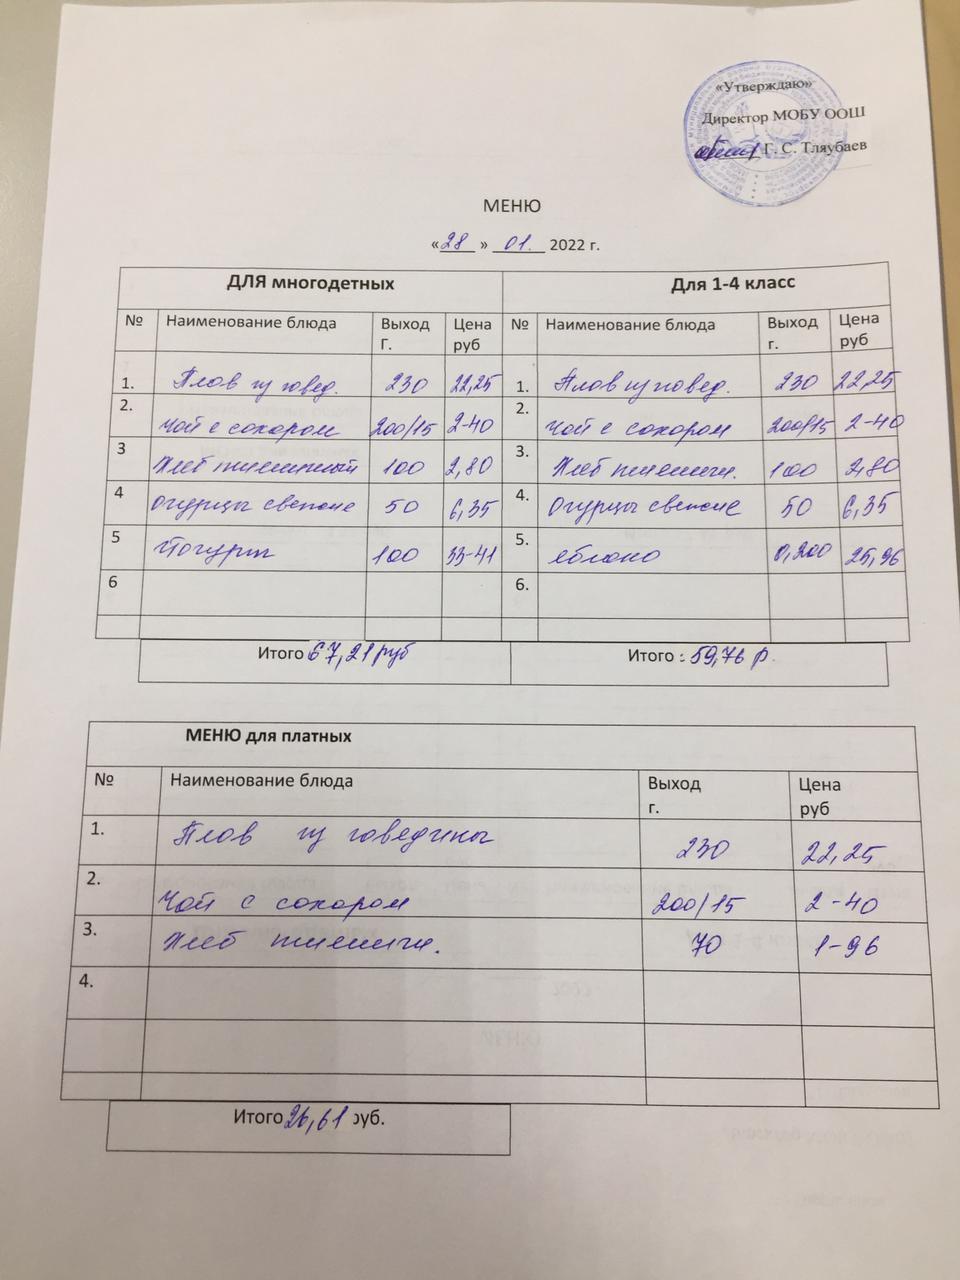 «Утверждаю»
Директор МОБУ ООШ
Г. С. Тляубаев
МЕНЮ
«28» 01. 2022 г.
ДЛЯ многодетных Для 1-4 класс
№ Наименование блюда Выход Г. Цена руб № Наименование блюда Выход г. Цена руб
1. Плов из говед. 230 22,25 1. Плов из говед. 230 22,25
2. Чай с сахаром 200/15 2-40 2. Чай с сахаром 200/15 2-40
3 Хлеб пшеничный 100 2,80 3. Хлеб пшеничн. 100 2,80
4 Огурцы свежие 50 6,35 4. Огурцы свежие 50 6,35
5 Йогурт 100 33-41 5. Яблоко 0,200 25,96
6 6.
Итого 67,21 руб Итого : 59,76 р.
МЕНЮ для платных
№ Наименование блюда Выход г. Цена руб
1. Плов из говедины 230 22,25
2. Чай с сахаром 200/15 2-40
3. Хлеб пшеничн. 70 1-96
4.
Итого 26,61 руб.